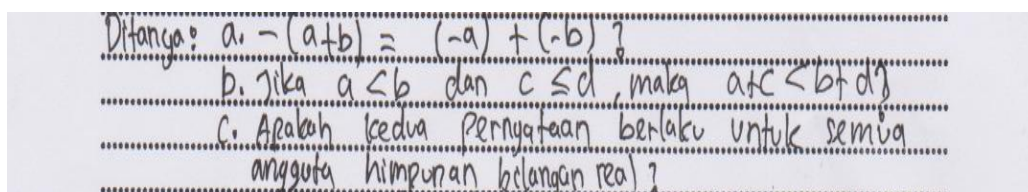 Ditanya: a. -(a+b) = (-a) + (-b) ?
b. Jika a < b dan c ≤ d, maka a+c < b+d?
c. Apakah kedua pernyataan berlaku untuk semua
anggota himpunan bilangan real ?